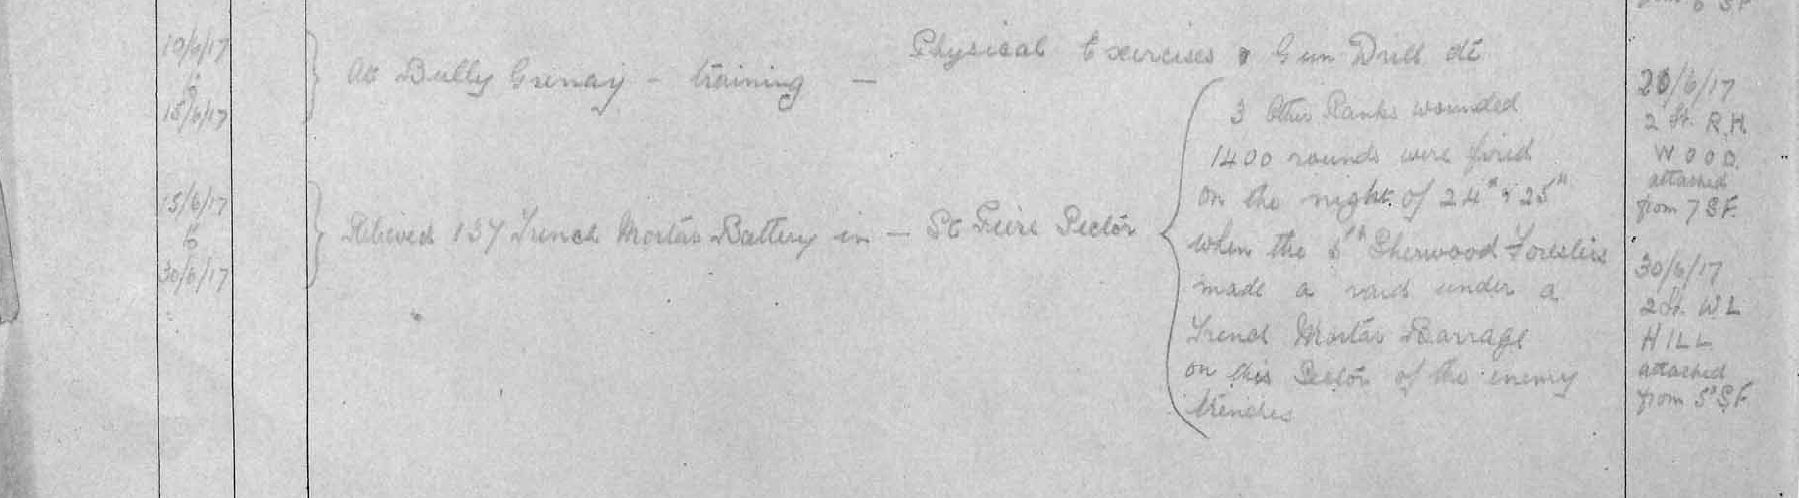 10/6/17
to
15/6/17
At Bully Grenay - training - Physical Exercises & Gun Drill etc
15/6/17
to
30/6/17
Relieved 137 Trench Mortar Battery in - St Pierre Sector
3 Other Ranks wounded
1400 rounds were fired
on the night of 24th & 25th
when the 5th Sherwood Foresters
made a raid under a
Trench Mortar Barrage
on this Sector of the enemy
trenches
20/6/17
2 Lt. R.H.
WOOD.
attached
from 7 S.F.
30/6/17
2 Lt. W L
HILL
attached
from 5th S.F.